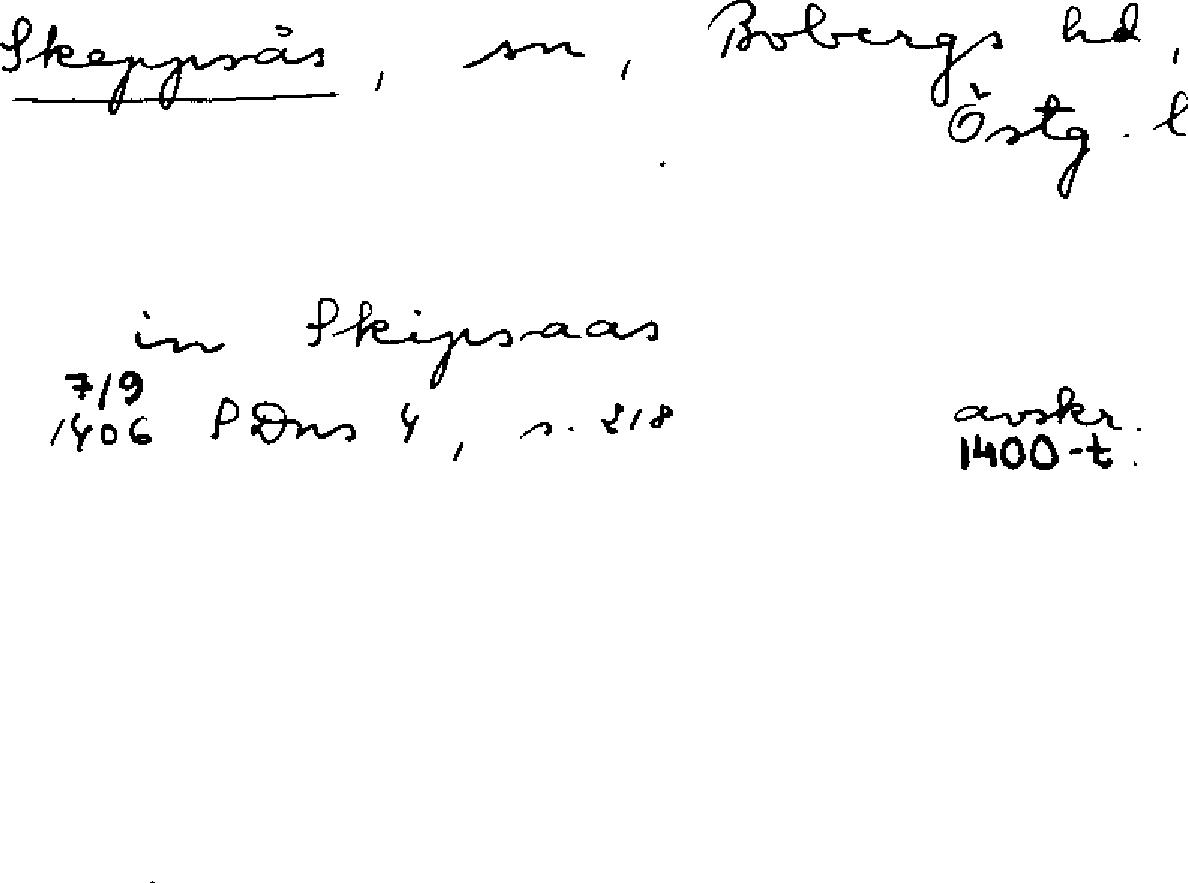 Skeppsås, sn, Bobergs hd,
Östg. l
in Skipsaas
7/9
1406 SDns 4, s. 818 avskr.
1400-t.